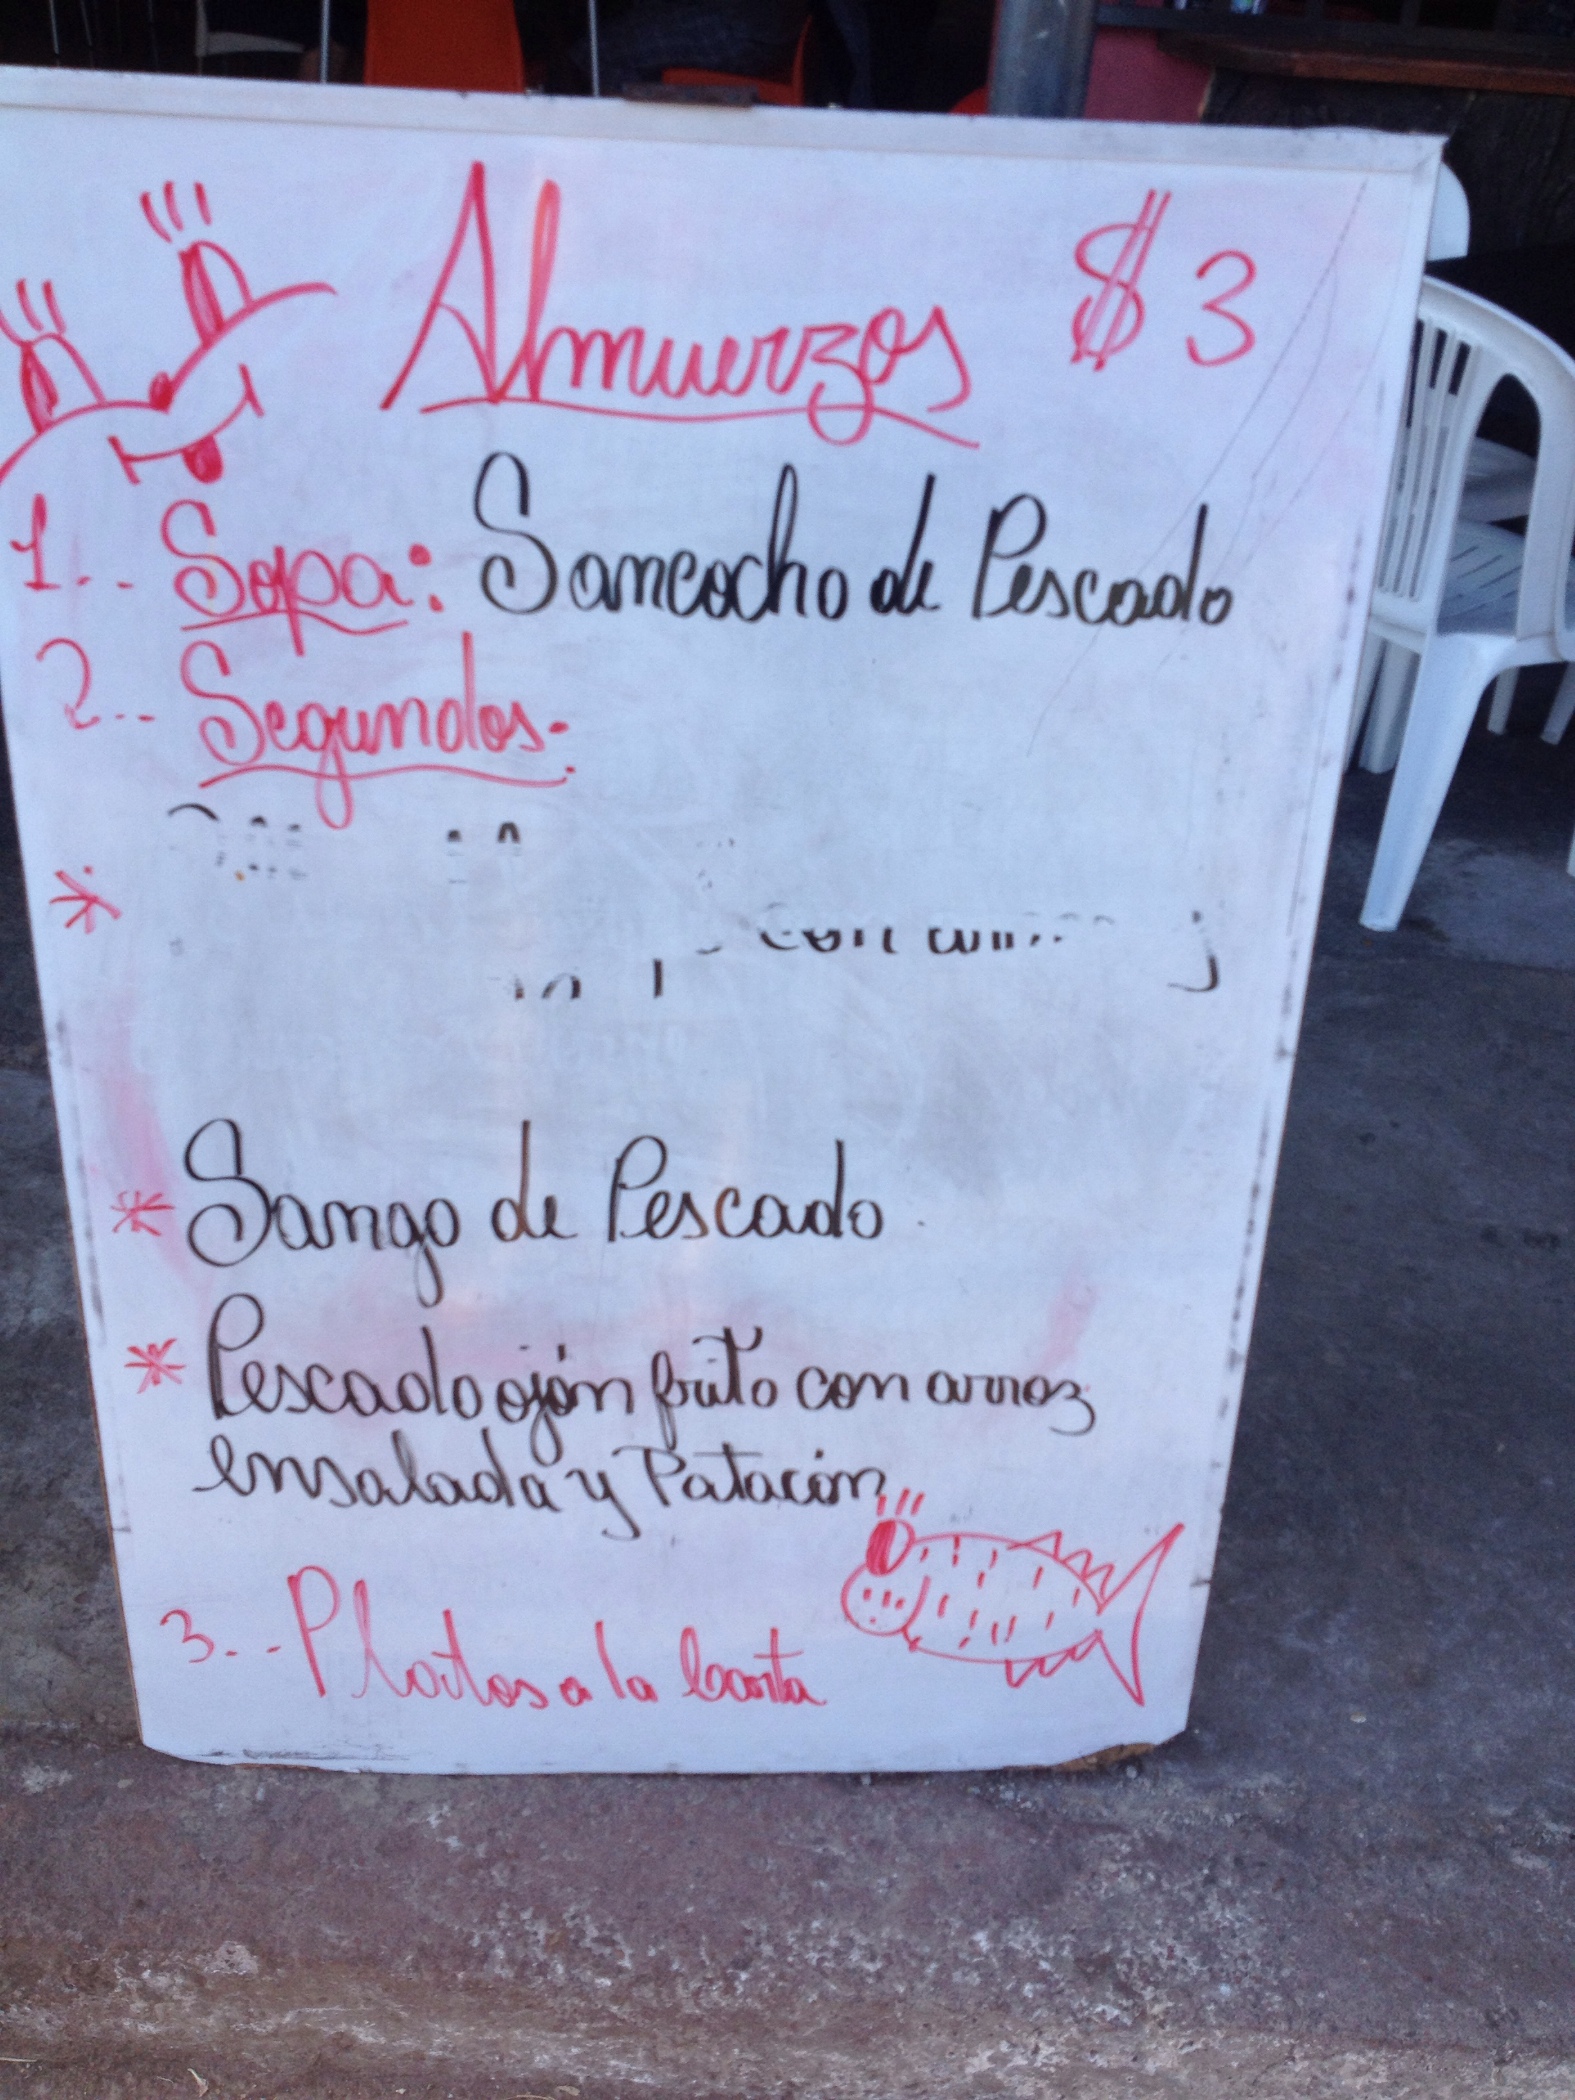 Almuerzos $ 3
1.. Sopa: Sancocho de Pescado
2.. Segundos.
*
con
* Sango de Pescado
* Pescado ojón frito con arroz
ensalada y Patacón
3.. Platos a la Carta